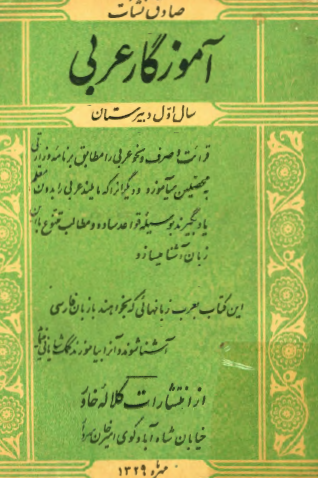 صادق نشأت
آموزگار عربی
سال اول دبیرستان
قرائت و صرف و نحو عربی را مطابق برنامه وزارتی
بمحصلین میآموزد و دیگرانرا که مایلند عربی را بدون معلم
یاد بگیرند بوسیله قواعد ساده و مطالب متنوع باین
زبان آشنا میسازد
این کتاب بعرب زبانهائی که بخواهند بازبان فارسی
آشنا شوند و آنرا بیاموزند کمک شایانی مینماید
از انتشارات کلاله خاور
خیابان شاه آباد کوی
مهرماه ۱۳۲۹